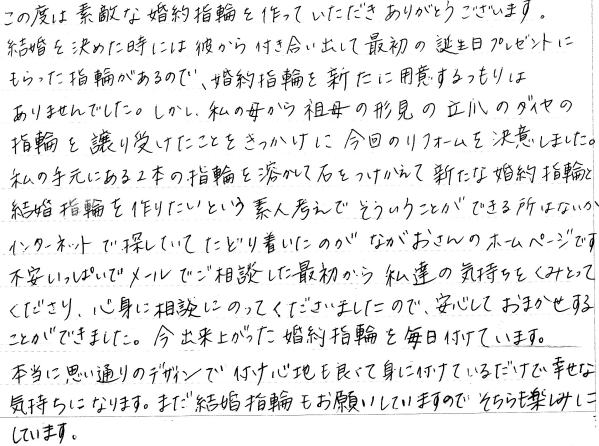 この度は素敵な婚約指輪を作っていただきありがとうございます。
結婚を決めた時には彼から付き合い出して最初の誕生日プレゼントに
もらった指輪があるので、婚約指輪を新たに用意するつもりは
ありませんでした。しかし、私の母から祖母の形見の立爪のダイヤの
指輪を譲り受けたことをきっかけに今回のリフォームを決意しました。
私の手元にある2本の指輪を溶かして石をつけかえて新たな婚約指輪と
結婚指輪を作りたいという素人考えでそういうことができる所はないか
インターネットで探していてたどり着いたのがながおさんのホームページです
不安いっぱいでメールでご相談した最初から私達の気持ちをくみとって
くださり、心身に相談にのってくださいましたので、安心しておまかせする
ことができました。今出来上がった婚約指輪を毎日付けています。
本当に思い通りのデザインで付け心地も良くて身に付けているだけで幸せな
気持ちになります。まだ結婚指輪もお願いしていますのでそちらも楽しみに
しています。